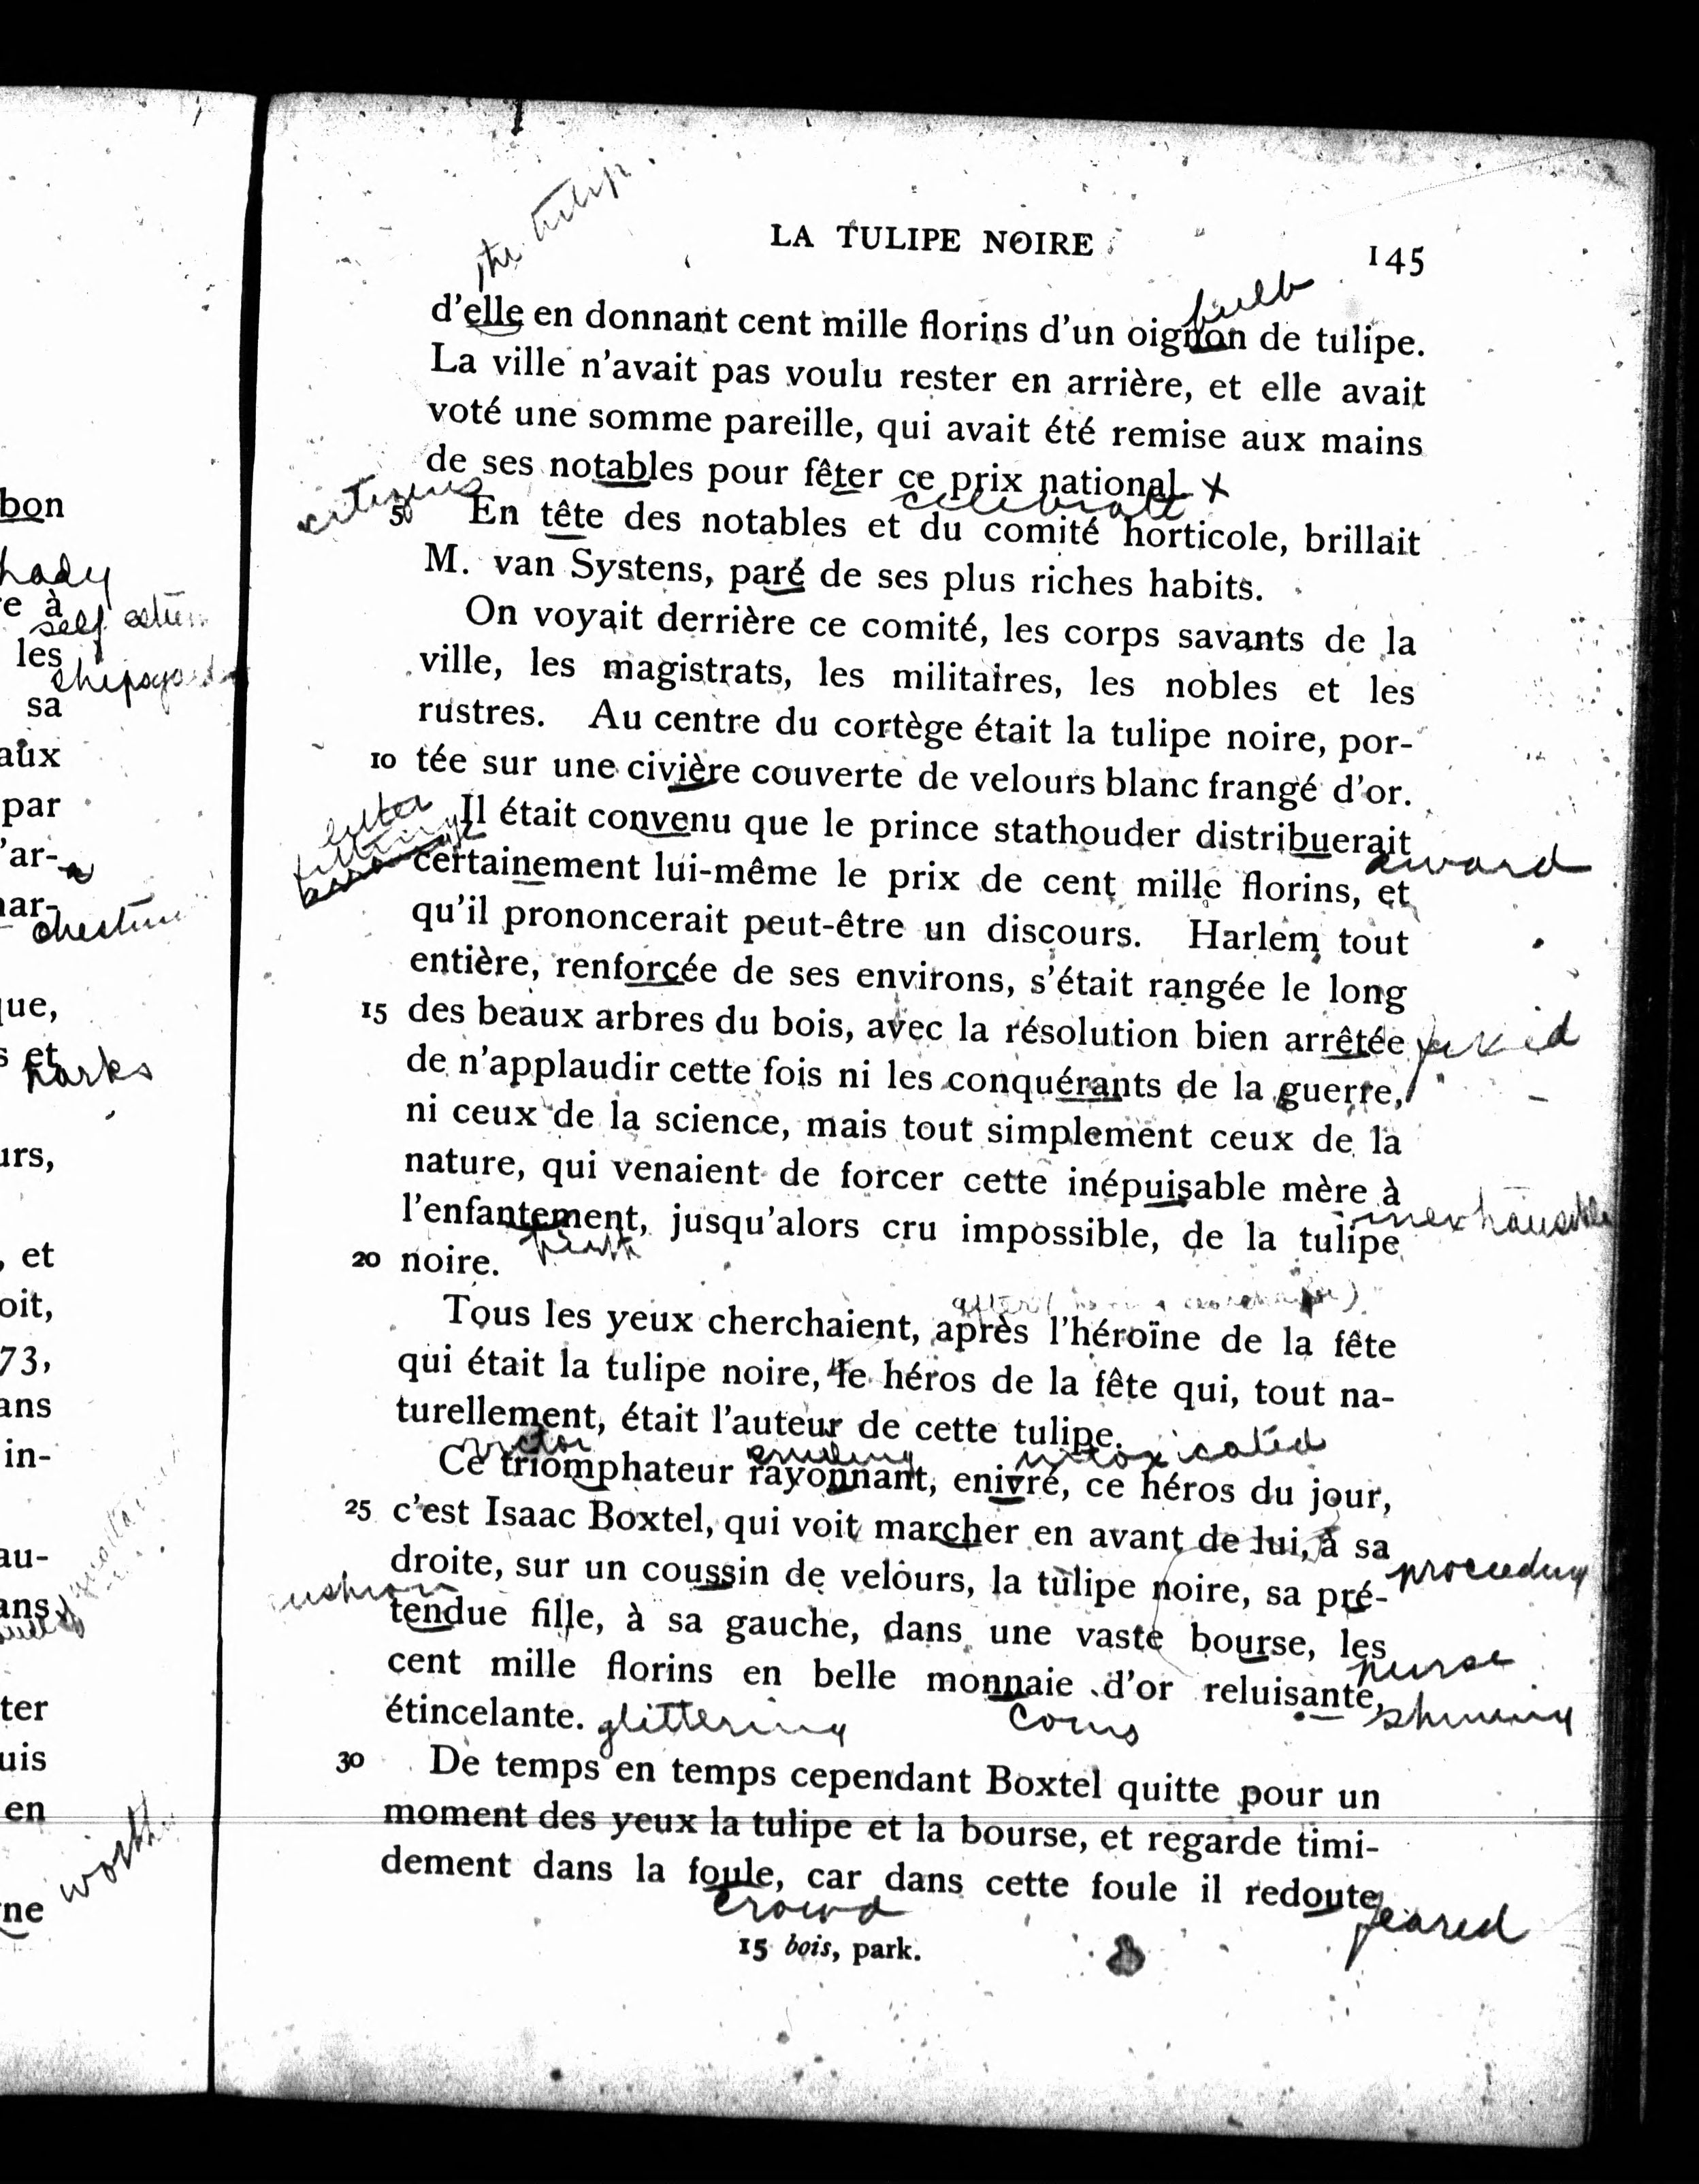 bon
hady
re à
self
les
sa
aux
par
'ar-
nar-
que,
s et
parks
urs,
, et
oit,
73,
ans
in-
au-
ans
ter
uis
en
worth
ne
the tulip
LA TULIPE NOIRE
145
bulb
d'elle en donnant cent mille florins d'un oignon de tulipe.
La ville n'avait pas voulu rester en arrière, et elle avait
voté une somme pareille, qui avait été remise aux mains
de ses notables pour fêter ce prix national. x
citizens celebrate
5 En tête des notables et du comité horticole, brillait
M. van Systens, paré de ses plus riches habits.
On voyait derrière ce comité, les corps savants de la
ville, les magistrats, les militaires, les nobles et les
rustres. Au centre du cortège était la tulipe noire, por-
10 tée sur une civière couverte de velours blanc frangé d'or.
litter
Il était convenu que le prince stathouder distribuerait
award
certainement lui-même le prix de cent mille florins, et
qu'il prononcerait peut-être un discours. Harlem tout
entière, renforcée de ses environs, s'était rangée le long
15 des beaux arbres du bois, avec la résolution bien arrêtée
de n'applaudir cette fois ni les conquérants de la guerre,
ni ceux de la science, mais tout simplement ceux de la
nature, qui venaient de forcer cette inépuisable mère à
inexhaustible
l'enfantement, jusqu'alors cru impossible, de la tulipe
birth
20 noire.
after
Tous les yeux cherchaient, après l'héroïne de la fête
qui était la tulipe noire, le héros de la fête qui, tout na-
turellement, était l'auteur de cette tulipe.
victor smiling intoxicated
Ce triomphateur rayonnant, enivré, ce héros du jour,
25 c'est Isaac Boxtel, qui voit marcher en avant de lui, à sa
proceeding
droite, sur un coussin de velours, la tulipe noire, sa pré-
cushion
tendue fille, à sa gauche, dans une vaste bourse, les
purse
cent mille florins en belle monnaie d'or reluisante,
shining
étincelante. glittering coins
30 De temps en temps cependant Boxtel quitte pour un
moment des yeux la tulipe et la bourse, et regarde timi-
dement dans la foule, car dans cette foule il redoute
crowd feared
15 bois, park.